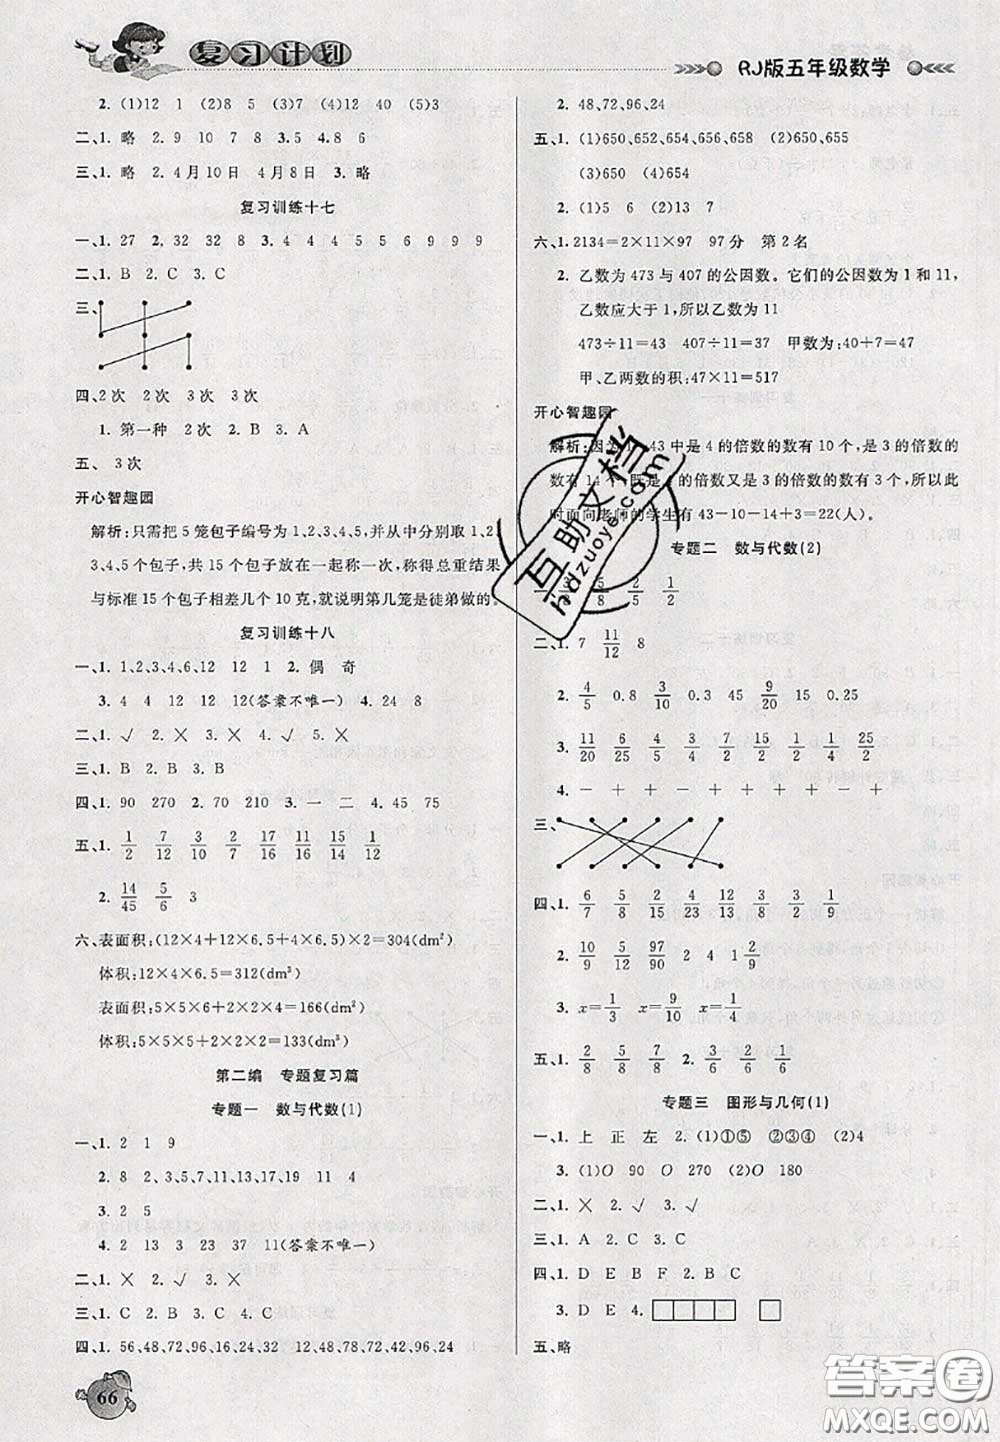 复习计划
RJ版五年级数学
2. (1)12 1 (2)8 5 (3)7 (4)12 40 (5)3
二、1. 略 2. 9 10 7 8 3. 5 4. 8 6
三、1. 略 2. 4月10日 4月8日 3. 略
复习训练十七
一、1. 27 2. 32 32 8 3. 4 4 4 5 5 6 9 9 9 9
二、1. B 2. C 3. C
三、
四、2次 2次 3次 3次
1. 第一种 2次 2. B 3. A
五、3次
开心智趣园
解析:只需把5笼包子编号为1,2,3,4,5,并从中分别取1,2,
3,4,5个包子,共15个包子放在一起称一次,称得总重结果
与标准15个包子相差几个10克,就说明第几笼是徒弟做的。
复习训练十八
一、1. 1,2,3,4,6,12 12 1 2. 偶 奇
3. 4 4 12 12 12(答案不唯一) 4. 24 8
二、1. √ 2. × 3. × 4. √ 5. ×
三、1. B 2. B 3. B
四、1. 90 270 2. 70 210 3. 一 二 4. 45 75
五、1. 1/2 7/12 3/10 2/7 12/16 11/15 14/11 1/12
2. 14/45 5/6 3
六、表面积:(12×4+12×6.5+4×6.5)×2=304(dm²)
体积:12×4×6.5=312(dm³)
表面积:5×5×6+2×2×4=166(dm²)
体积:5×5×5+2×2×2=133(dm³)
第二编 专题复习篇
专题一 数与代数(1)
一、1. 2 1 9
2. 8 2,3,5,7,11,13,17,19
3. 2 5
4. 2 13 3 23 37 11(答案不唯一)
二、1. × 2. √ 3. ×
三、1. C 2. B 3. C 4. C
四、1. 56,48,72,96,16,24,32 12,48,56,72,42,96,24
2. 48,72,96,24
五、1. (1)650,652,654,656,658 (2)650,655
(3)650 (4)654
2. (1)5 6 (2)13 7
六、1. 2134=2×11×97 97分 第2名
2. 乙数为473与407的公因数。它们的公因数为1和11,
乙数应大于1,所以乙数为11
473÷11=43 407÷11=37 甲数为:40+7=47
甲、乙两数的积:47×11=517
开心智趣园
解析:因为1 43中是4的倍数的数有10个,是3的倍数的
数有14个,既是4的倍数又是3的倍数的数有3个,所以此
时面向老师的学生有43-10-14+3=22(人)。
专题二 数与代数(2)
3/8 5/8 2/5 1/2
二、1. 7 11/12 8
2. 4/5 0.8 3/10 0.3 45 9/20 15 0.25
3. 11/20 6/25 3/4 3/2 7/2 15/2 1/2 1/4 25/2
4. - + + - + + + + -
三、
四、1. 6/7 5/8 2/15 4/23 12/13 3/8 3/2 1/9
2. 10/9 5/12 97/90 2 4 1 2/9
3. x=1/3 x=9/10 x=1/4
五、1. 2/8 2/8 3/8 2. 3/6 2/6 1/6
专题三 图形与几何(1)
一、1. 上 正 左 2. (1)①⑤ ②③④ (2)4
3. (1)O 90 O 270 (2)O 180
二、1. × 2. √ 3. × 4. √
三、1. A 2. C 3. C 4. D
四、1. D E B F 2. B C
3. D E 4.
五、略
66
互助文档
hdzuoye.com
答案圈
MXQE.COM